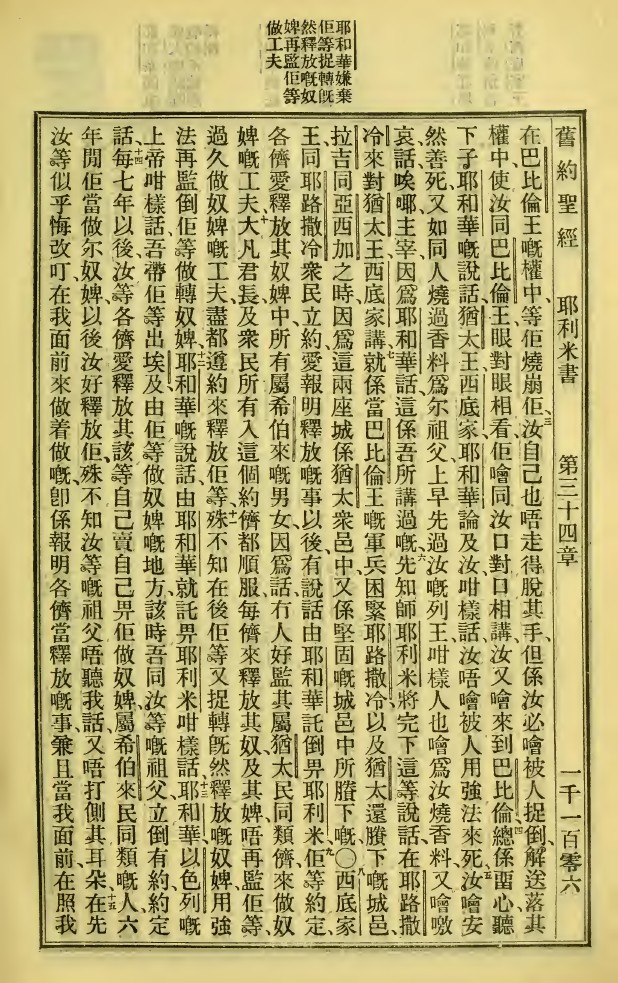 耶和華嫌棄
佢等捉轉旣
然釋放嘅奴
婢再監佢等
做工夫
舊約聖經 耶利米書 第三十四章 一千一百零六
在巴比倫王嘅權中、等佢燒崩佢、三汝自己也唔走得脫其手、但係汝必噲被人捉倒、解送落其
權中、使汝同巴比倫王眼對眼相看、佢噲同汝口對口相講、汝又噲來到巴比倫、四總係畱心聽
下子、耶和華嘅說話、猶太王西底家、耶和華論及汝咁樣話、汝唔噲被人用強法來死、五汝噲安
然善死、又如同人燒過香料爲尔祖父上早先過汝嘅列王咁樣人也噲爲汝燒香料、又噲噭
哀話、唉㖿主宰、因爲耶和華話、這係吾所講過嘅、六先知師耶利米將完下這等說話、在耶路撒
冷來對猶太王西底家講、七就係當巴比倫王嘅軍兵困緊耶路撒冷以及猶太還賸下嘅城邑、
拉吉同亞西加之時、因爲這兩座城係猶太衆邑中、又係堅固嘅城邑中所賸下嘅、〇八西底家
王同耶路撒冷衆民立約、愛報明釋放嘅事以後、有說話由耶和華託倒畀耶利米、九佢等約定、
各儕愛釋放其奴婢中所有屬希伯來嘅男女、因爲話冇人好監其屬猶太民同類儕來做奴
婢嘅工夫、十大凡君長及衆民所有入這個約儕都順服、每儕來釋放其奴及其婢、唔再監佢等、
過久做奴婢嘅工夫、盡都遵約來釋放佢等、十一殊不知在後佢等又捉轉旣然釋放嘅奴婢、用強
法再監倒佢等做轉奴婢、十二耶和華嘅說話、由耶和華就託畀耶利米咁樣話、十三耶和華以色列嘅
上帝咁樣話、吾帶佢等出埃及由佢等做奴婢嘅地方、該時吾同汝等嘅祖父立倒有約、約定
話、十四每七年以後、汝等各儕愛釋放其該等自己賣自己畀佢做奴婢、屬希伯來民同類嘅人、六
年閒佢當做尔奴婢、以後汝好釋放佢、殊不知汝等嘅祖父唔聽我話、又唔打側其耳朵、十五在先
汝等似乎悔改叮、在我面前來做着做嘅、卽係報明各儕當釋放嘅事、兼且當我面前、在照我